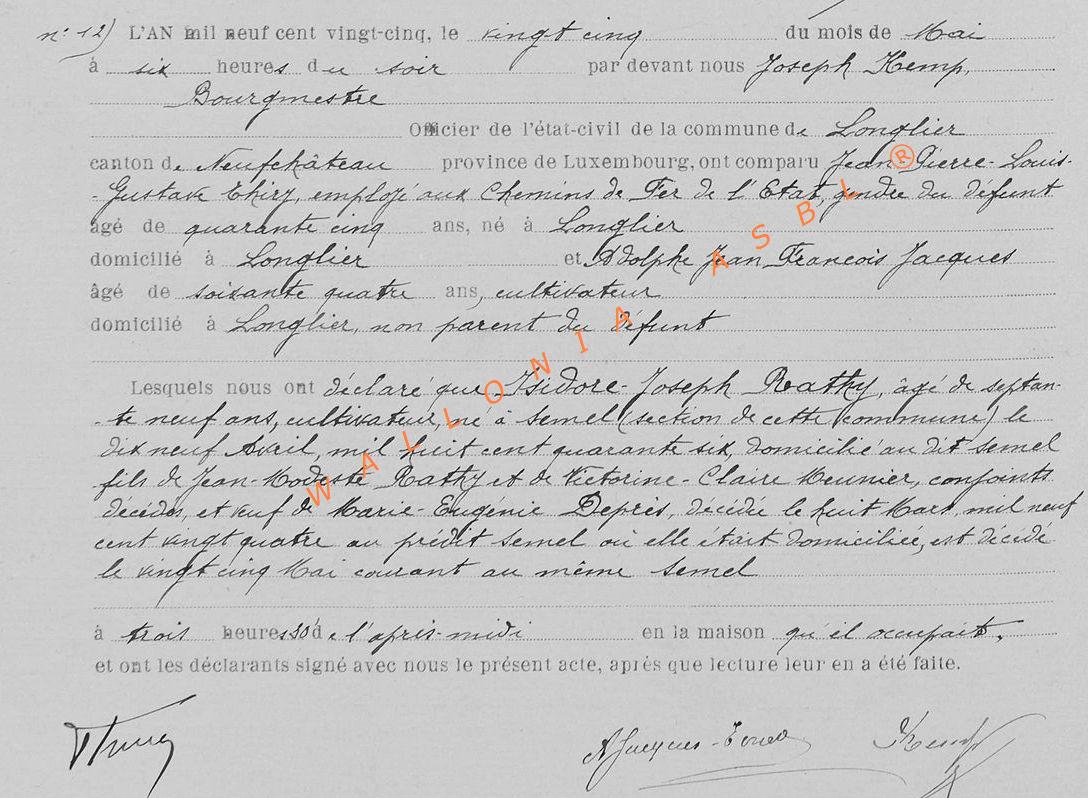 n° 12) L'AN mil neuf cent vingt-cinq, le vingt cinq du mois de Mai
à six heures du soir par devant nous Joseph Kemp,
Bourgmestre
Officier de l'état-civil de la commune de Longlier
canton de Neufchâteau province de Luxembourg, ont comparu Jean-Pierre-Louis-
-Gustave Thiry, employé aux Chemins de Fer de l'Etat, gendre du défunt
âgé de quarante cinq ans, né à Longlier
domicilié à Longlier et Adolphe Jean François Jacques
âgé de soixante quatre ans, cultivateur
domicilié à Longlier, non parent du défunt
Lesquels nous ont déclaré que Isidore-Joseph Rathy, âgé de septan-
-te neuf ans, cultivateur, né à Semel (section de cette commune) le
dix neuf Avril, mil huit cent quarante six, domicilié au dit Semel
fils de Jean-Modeste Rathy et de Victorine-Claire Meunier, conjoints
décédés, et veuf de Marie-Eugénie Deprès, décédée le huit Mars, mil neuf
cent vingt quatre au prédit Semel où elle était domiciliée, est décédé
le vingt cinq Mai courant au même Semel
à trois heures 30' de l'après-midi en la maison qu'il occupait,
et ont les déclarants signé avec nous le présent acte, après que lecture leur en a été faite.
WALLONIA ASBL ®
AJacques- Kemp